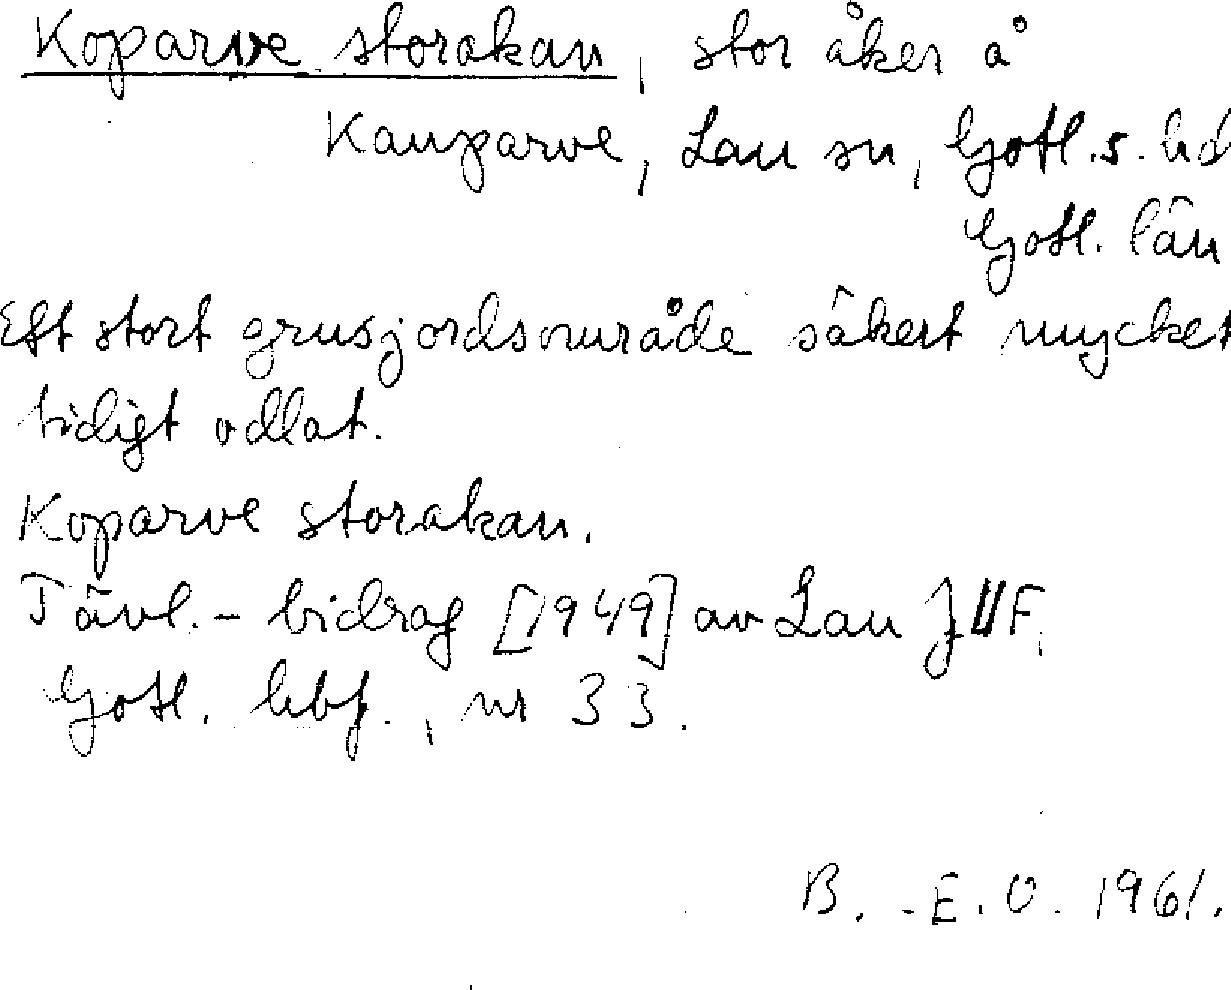 Koparve storakan, stor åker å
Kauparve, Lau sn, Gotl. s. hd
Gotl. län
Ett stort grusjordsområde säkert mycket
tidigt odlat.
Koparve storakan.
Tävl. - bidrag [1949] av Lau JUF,
Gotl. hbf., nr 33.
B. - E. O. 1961.